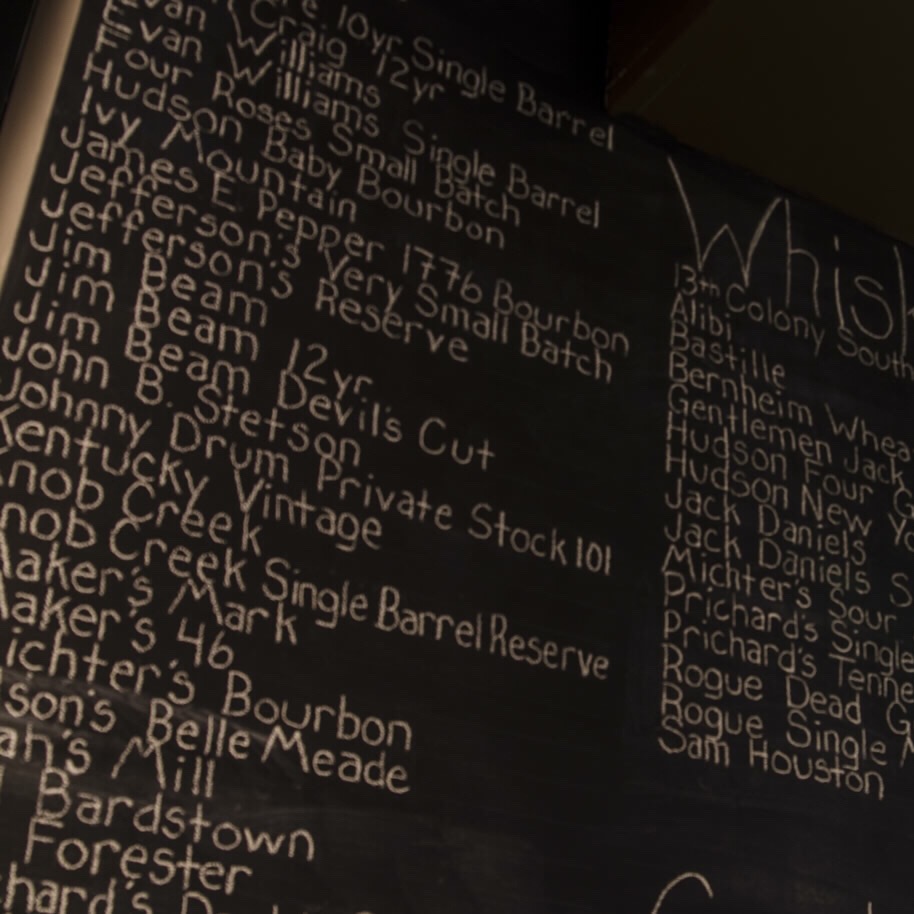 10yr Single Barrel
Craig 12yr
Evan Williams
Evan Williams Single Barrel
Four Roses Small Batch
Hudson Baby Bourbon
Ivy Mountain
James E. Pepper 1776 Bourbon
Jefferson's Very Small Batch
Jefferson's Reserve
Jim Beam
Jim Beam 12yr.
Jim Beam Devil's Cut
John B. Stetson
Johnny Drum Private Stock 101
Kentucky Vintage
Knob Creek
Knob Creek Single Barrel Reserve
Maker's Mark
Maker's 46
ichter's Bourbon
son's Belle Meade
ah's Mill
Bardstown
Forester
hard's
Whisk
13th Colony South
Alibi
Bastille
Bernheim Whea
Gentlemen Jack
Hudson Four G
Hudson New Yo
Jack Daniels
Jack Daniels S
Michter's Sour
Prichard's Single
Prichard's Tenne
Rogue Dead G
Rogue Single M
Sam Houston